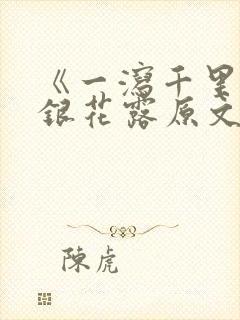 《一瀉千里
銀花露原文
陳虎